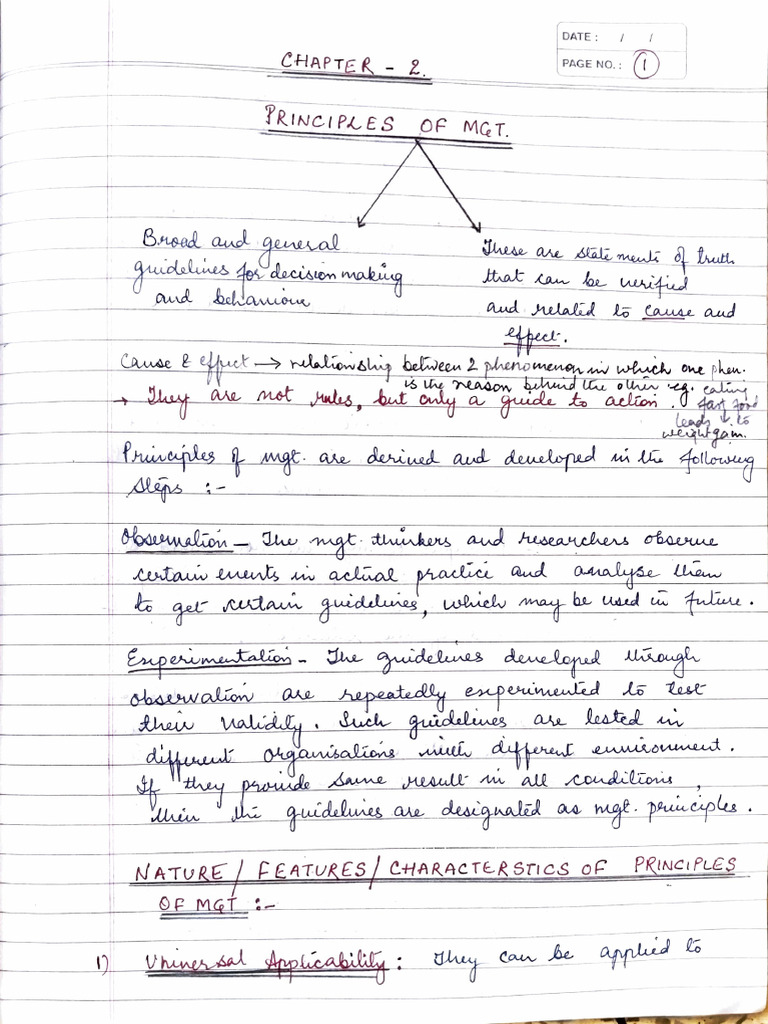 DATE : / /
PAGE NO. : 1
CHAPTER - 2.
PRINCIPLES OF MGT.
Broad and general
guidelines for decision making
and behaviour
These are statements of truth
that can be verified
and related to cause and
effect.
Cause & effect → relationship between 2 phenomenon in which one phen.
is the reason behind the other eg. eating
fast food
leads to
weight gain.
→ They are not rules, but only a guide to action.
Principles of mgt. are derived and developed in the following
steps :-
Observation – The mgt. thinkers and researchers observe
certain events in actual practice and analyse them
to get certain guidelines, which may be used in future.
Experimentation – The guidelines developed through
observation are repeatedly experimented to test
their validity. Such guidelines are tested in
different organisations with different environment.
If they provide same result in all conditions,
then the guidelines are designated as mgt. principles.
NATURE / FEATURES / CHARACTERSTICS OF PRINCIPLES
OF MGT :-
1) Universal Applicability : They can be applied to